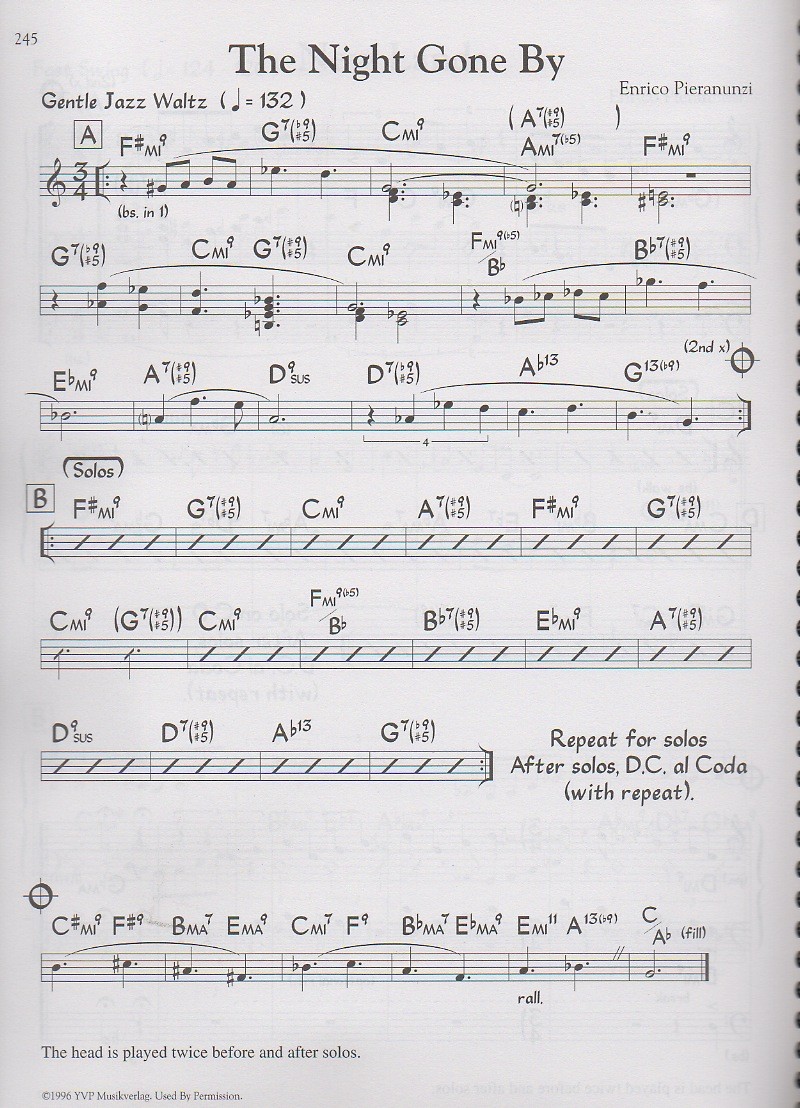 245
The Night Gone By
Enrico Pieranunzi
Gentle Jazz Waltz (♩= 132)
A
F♯MI9 G7(♭9 ♯5) CMI9 (A7(♯9 ♯5)) AMI7(♭5) F♯MI9
3/4
(bs. in 1)
G7(♭9 ♯5) CMI9 G7(♯9 ♯5) CMI9 FMI9(♭5)/B♭ B♭7(♯9 ♯5)
(2nd x)
E♭MI9 A7(♯9 ♯5) D9SUS D7(♯9 ♯5) A♭13 G13(♭9)
4
(Solos)
B
F♯MI9 G7(♯9 ♯5) CMI9 A7(♯9 ♯5) F♯MI9 G7(♯9 ♯5)
CMI9 (G7(♯9 ♯5)) CMI9 FMI9(♭5)/B♭ B♭7(♯9 ♯5) E♭MI9 A7(♯9 ♯5)
D9SUS D7(♯9 ♯5) A♭13 G7(♭9 ♯5)
Repeat for solos
After solos, D.C. al Coda
(with repeat).
C♯MI9 F♯9 BMA7 EMA9 CMI7 F9 B♭MA7 E♭MA9 EMI11 A13(♭9) C/A♭ (fill)
rall.
The head is played twice before and after solos.
©1996 YVP Musikverlag. Used By Permission.